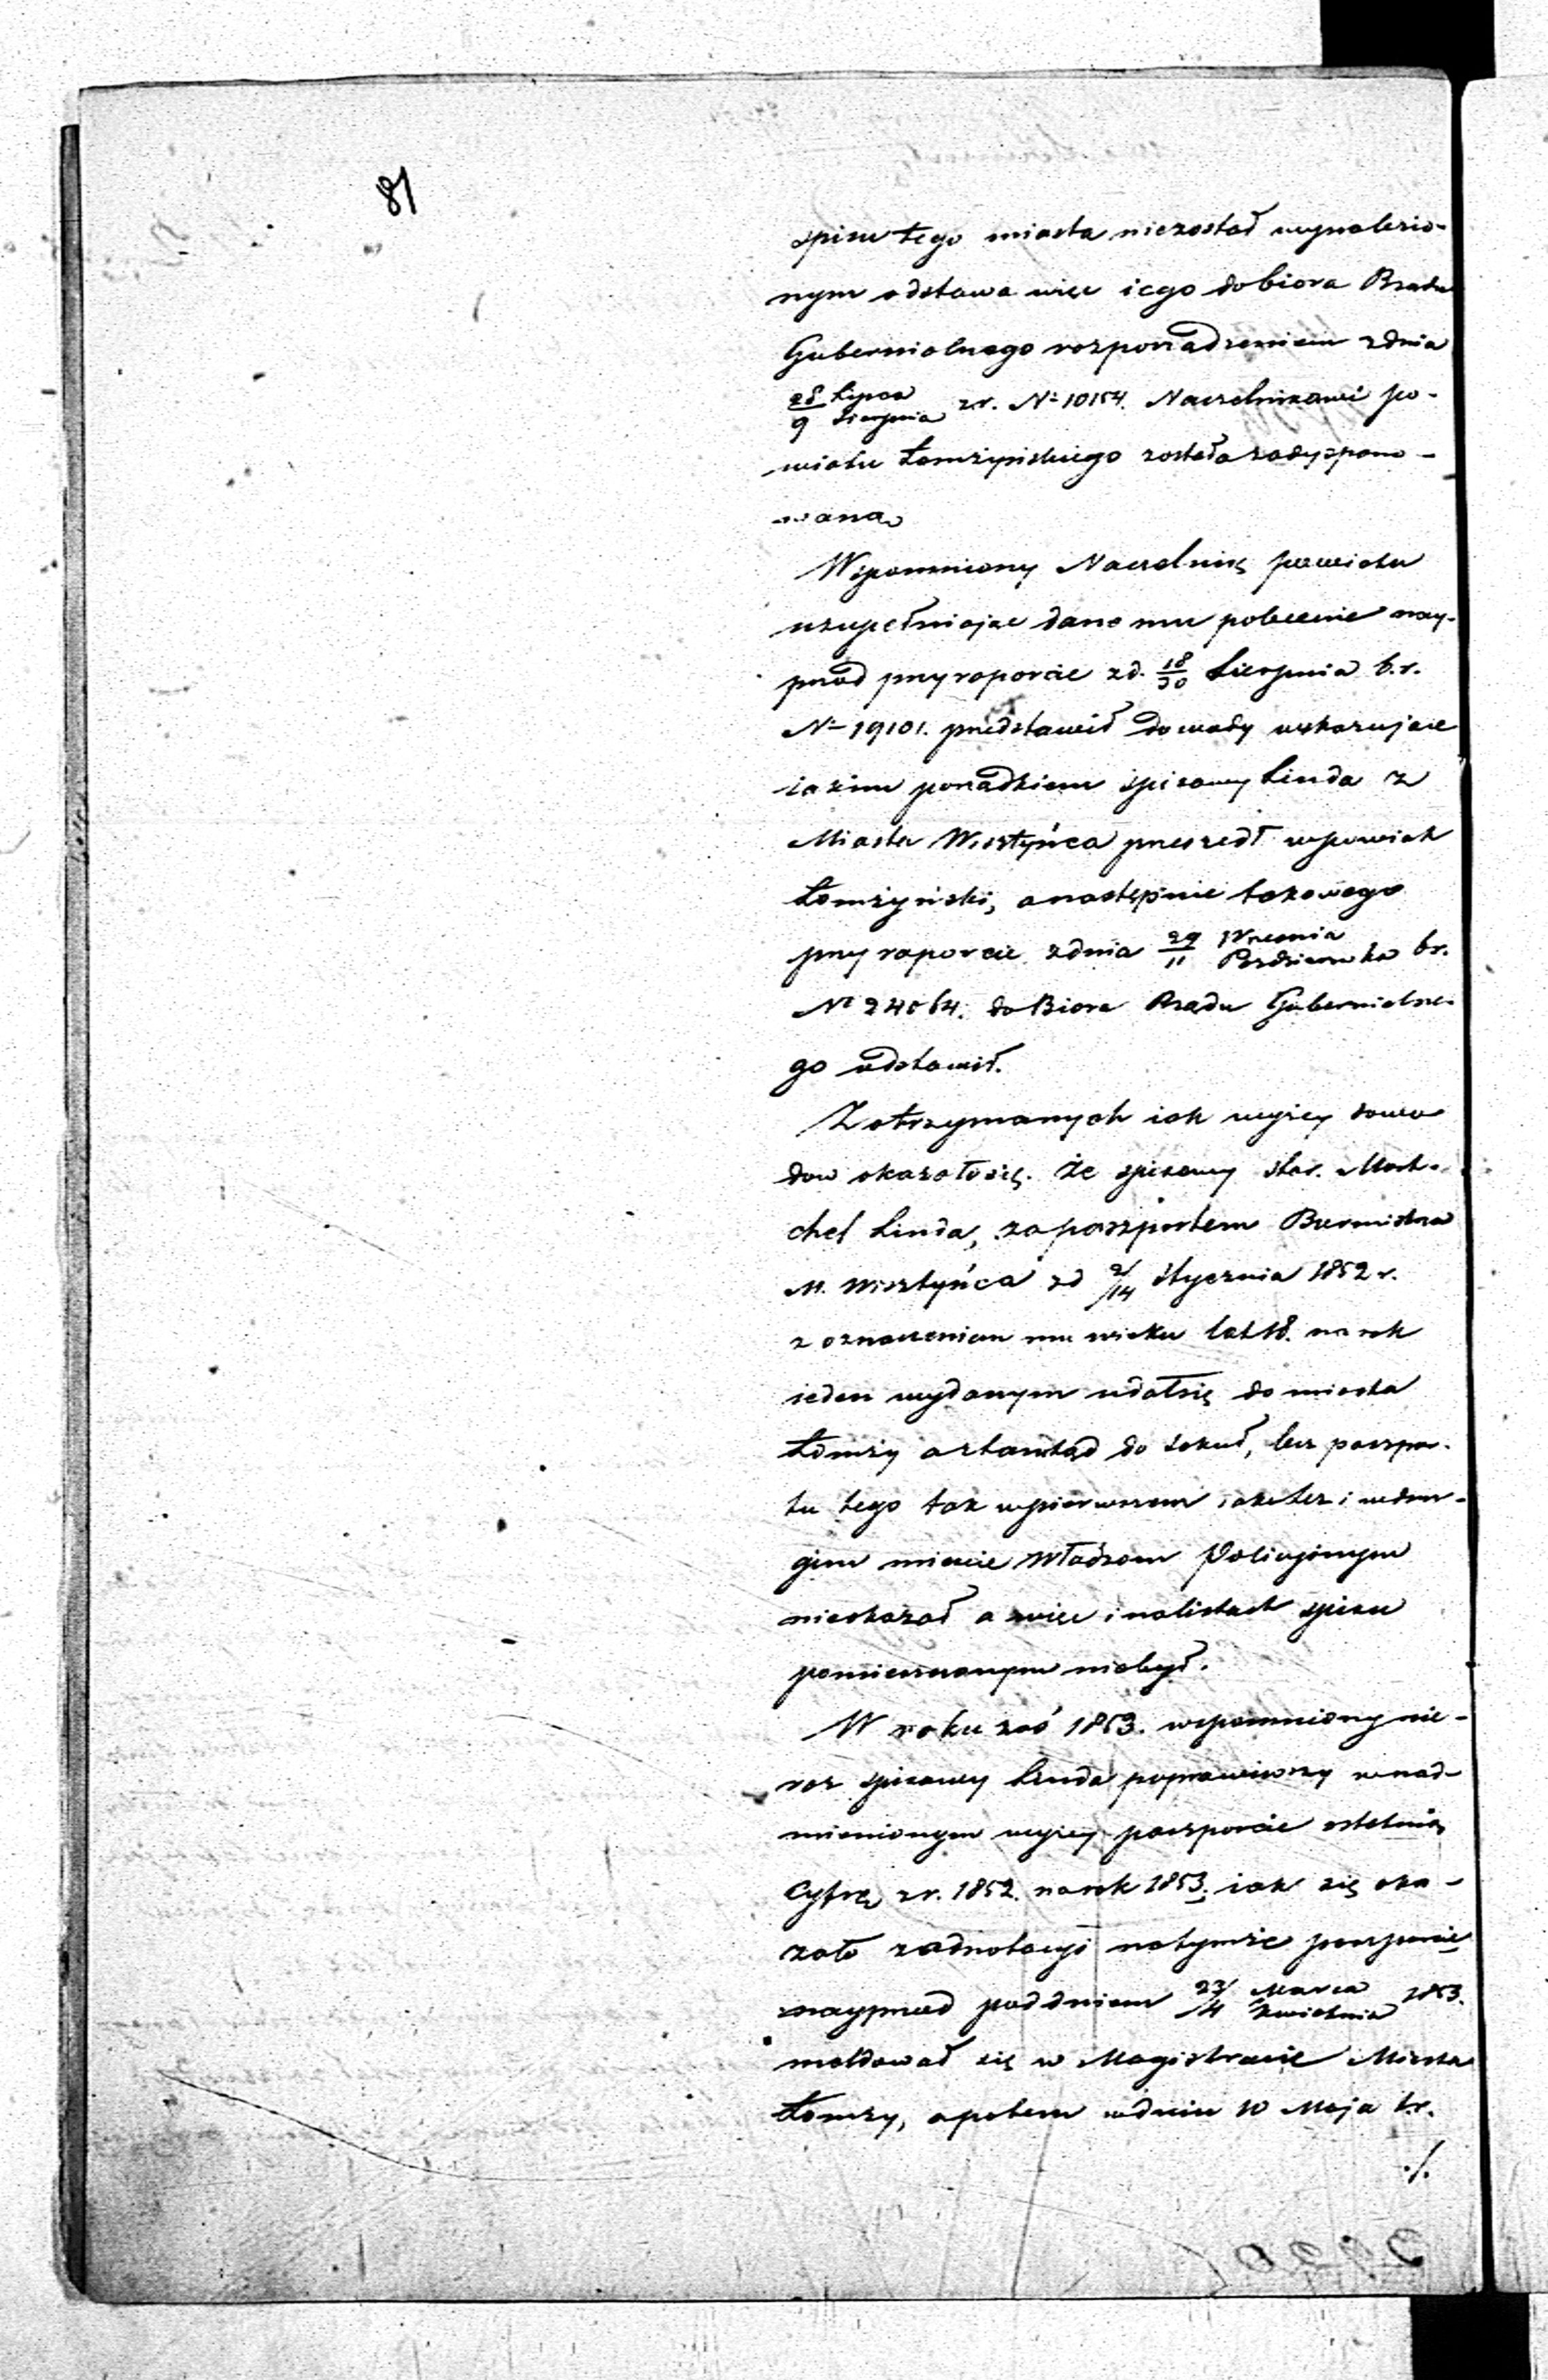 81
spisu tego miasta niezostał wynalezio-
nym odstawa więc iego do biora Rządu
Gubernialnego rozporządzeniem z dnia
28/9 Lipca/Sierpnia z.r. No 10154. Naczelnikowi po-
wiatu Łomżyńskiego została zadyspono-
wana
Wspomniony Naczelnik powiatu
uzupełniając dane mu polecenie nay-
przod przy raporcie z d. 18/30 Sierpnia b.r.
No 19101. przedstawił dowody wskazujące
iakim porządkiem spisowy Linda z
Miasta Wisztyńca przeszedł w powiat
Łomżyński, a następnie takowego
przy raporcie z dnia 29/11 Września/Października br.
No 24064. do Biora Rządu Gubernialne-
go odstawił.
Z otrzymanych iak wyżey dowo
dow okazało się. że spisowy star. Mort-
chel Linda, za paszportem Burmistrza
M. Wisztyńca z d 2/14 Stycznia 1852 r.
z oznaczeniem mu wieku lat 18. na rok
ieden wydanym udał się do miasta
Łomży a ztamtąd do , lecz paszpor-
tu tego tak w pierwszem iako też i w dru-
gim mieście Władzom Policyjnym
nieokazał a więc i na listach spisu
pomieszczonym niebył.
W roku zaś 1853. wspomniony nie-
raz spisowy Linda poprawiwszy w nad-
mienionym wyżey paszporcie ostatnią
Cyfrę z r. 1852. na rok 1853. iak się oka-
zało z adnotacyi na tymże paszporcie
nayprzod pod dniem 23/4 Marca/Kwietnia 1853.
meldował się w Magistracie Miasta
Łomży, a potem w dniu 10 Maja t.r.
./.